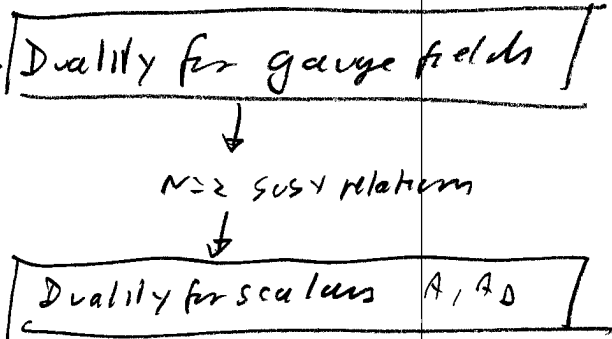 Duality for gauge fields
N=2 susy relations
Duality for scalars A, A_D